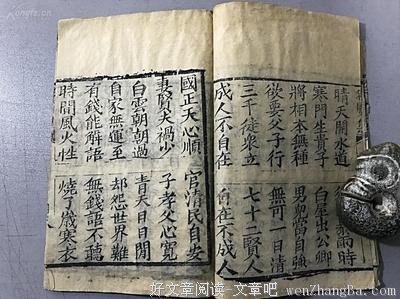 晴天開水道 雨時
寒門生貴子 白屋出公卿
將相本無種 男兒當自強
欲要夫子行 無可一日清
三千徒衆立 七十二賢人
成人不自在 自在不成人
國正天心順 官清民自安
妻賢夫禍少 子孝父心寬
白雲朝朝過 青天日日閒
自家無運至 却怨世界難
有錢能解語 無錢語不聽
時間風火性 燒了歲寒衣
好文章阅读-文章吧-wenZhangBa.com